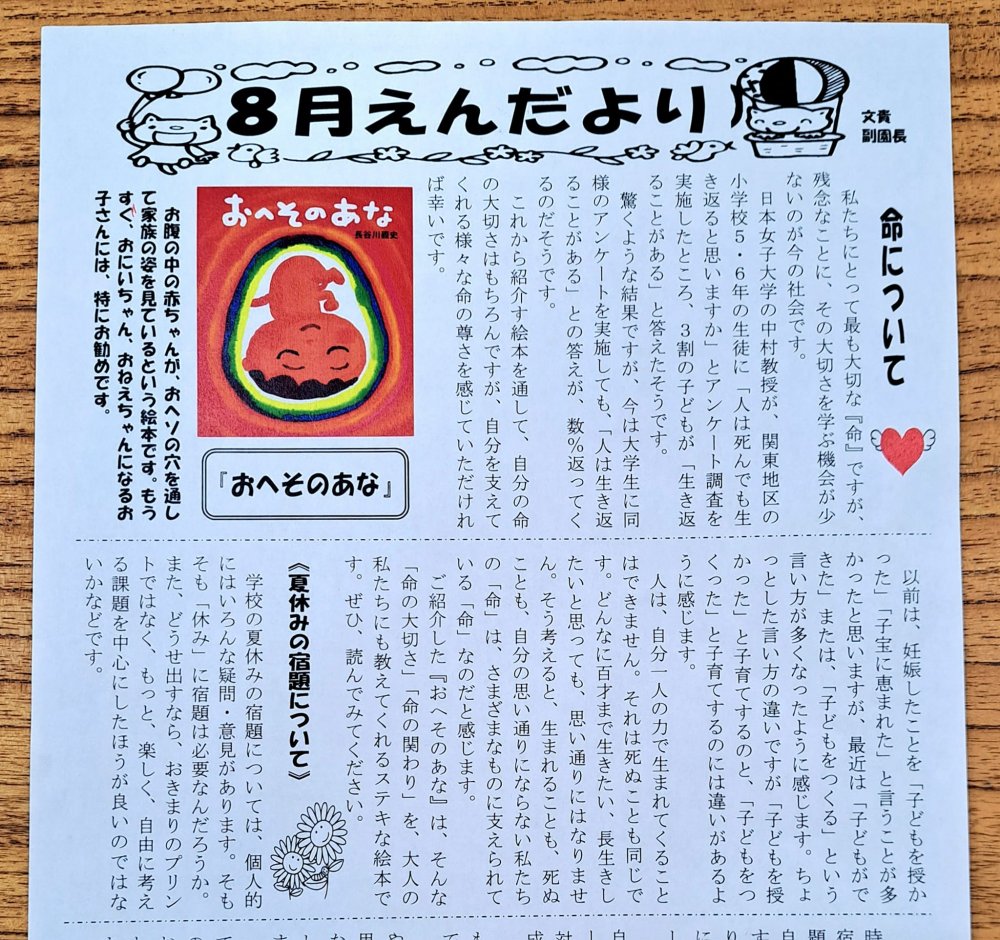 8月えんだより
文責
副園長
命について
私たちにとって最も大切な『命』ですが、
残念なことに、その大切さを学ぶ機会が少
ないのが今の社会です。
日本女子大学の中村教授が、関東地区の
小学校5・6年の生徒に「人は死んでも生
き返ると思いますか」とアンケート調査を
実施したところ、3割の子どもが「生き返
ることがある」と答えたそうです。
驚くような結果ですが、今は大学生に同
様のアンケートを実施しても、「人は生き返
ることがある」との答えが、数%返ってく
るのだそうです。
これから紹介す絵本を通して、自分の命
の大切さはもちろんですが、自分を支えて
くれる様々な命の尊さを感じていただけれ
ば幸いです。
おへそのあな
長谷川義史
『おへそのあな』
お腹の中の赤ちゃんが、おヘソの穴を通し
て家族の姿を見ているという絵本です。もう
すぐ、おにいちゃん、おねえちゃんになるお
子さんには、特にお勧めです。
以前は、妊娠したことを「子どもを授か
った」「子宝に恵まれた」と言うことが多
かったと思いますが、最近は「子どもがで
きた」または、「子どもをつくる」という
言い方が多くなったように感じます。ちょ
っとした言い方の違いですが「子どもを授
かった」と子育てするのと、「子どもをつ
くった」と子育てするのには違いがあるよ
うに感じます。
人は、自分一人の力で生まれてくること
はできません。それは死ぬことも同じで
す。どんなに百才まで生きたい、長生きし
たいと思っても、思い通りにはなりませ
ん。そう考えると、生まれることも、死ぬ
ことも、自分の思い通りにならない私たち
の「命」は、さまざまなものに支えられて
いる「命」なのだと感じます。
ご紹介した『おへそのあな』は、そんな
「命の大切さ」「命の関わり」を、大人の
私たちにも教えてくれるステキな絵本で
す。ぜひ、読んでみてください。
《夏休みの宿題について》
学校の夏休みの宿題については、個人的
にはいろんな疑問・意見があります。そも
そも「休み」に宿題は必要なんだろうか。
また、どうせ出すなら、おきまりのプリン
トではなく、もっと、楽しく、自由に考え
る課題を中心にしたほうが良いのではな
いかなどです。